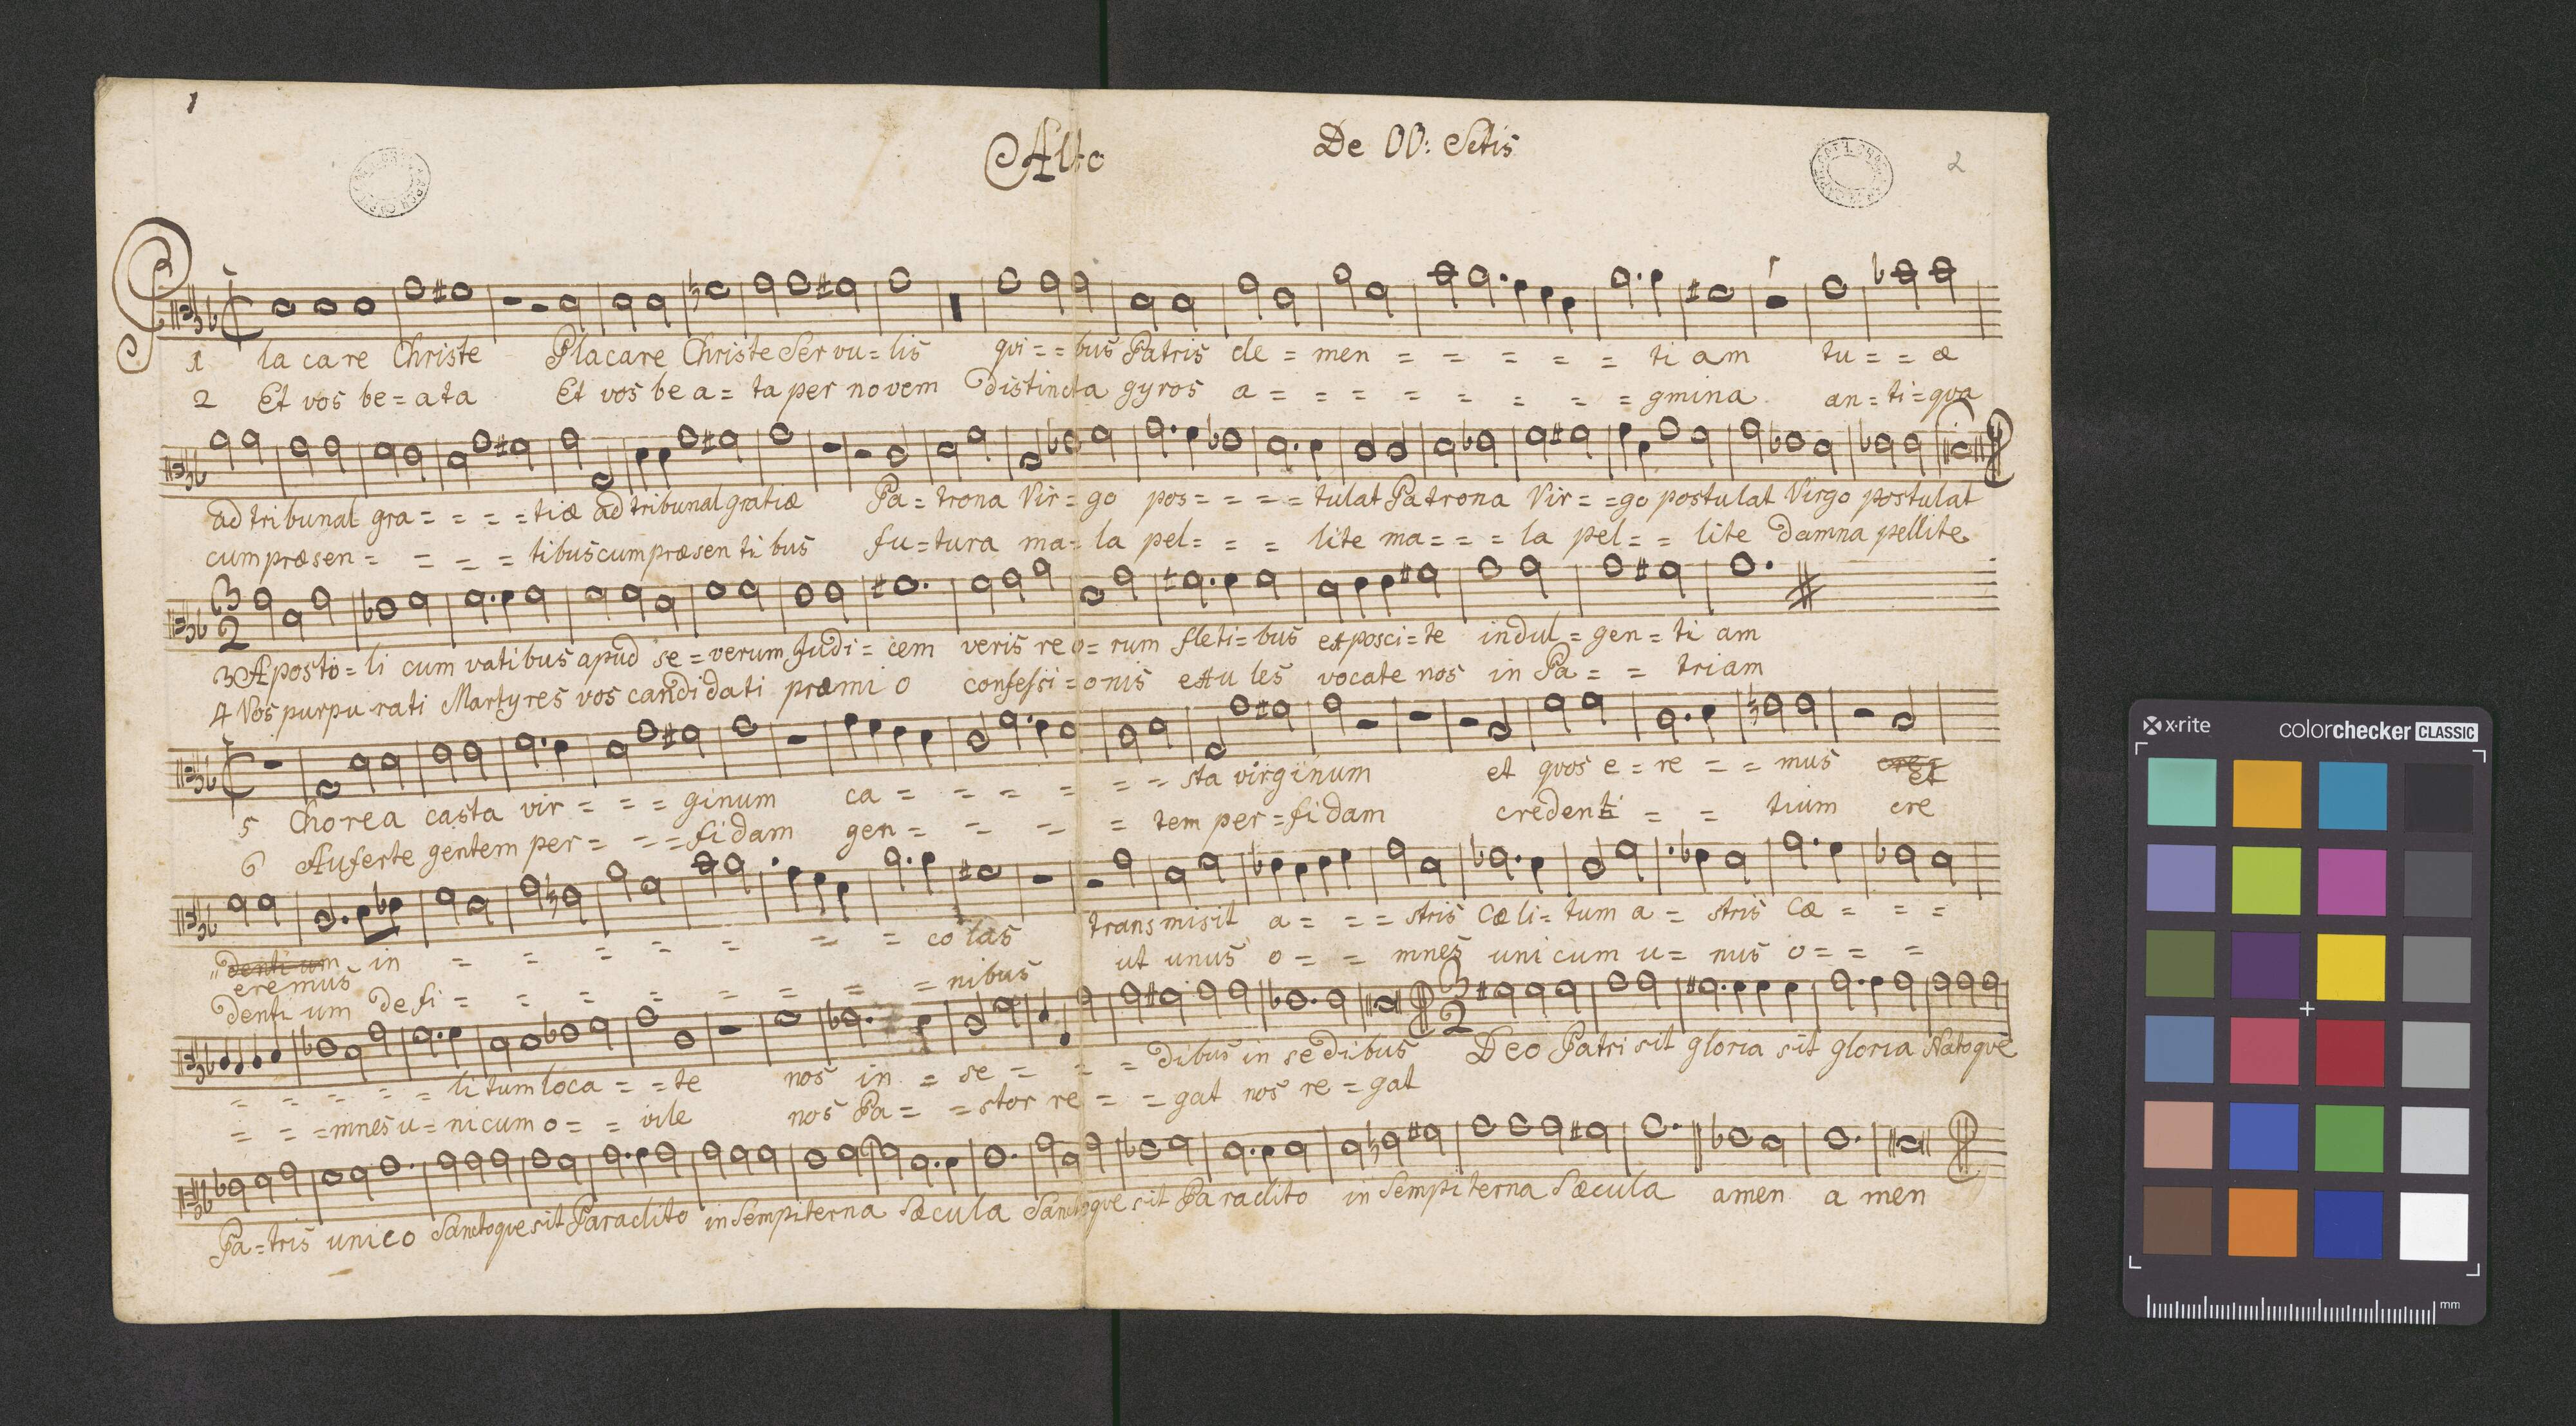 1
Alto
De OO: Sctis
2
1 Placare Christe Placare Christe Servu=lis qvi==bus Patris cle=men=====tiam tu==æ
2 Et vos be=ata Et vos be a=ta per novem distincta gyros a========gmina an=ti=qva
ad tribunal gra====tiæ ad tribunal gratiæ Pa=trona Vir=go pos====tulat Patrona Vir==go postulat Virgo postulat
cum præsen====tibus cum præsentibus fu=tura ma=la pel===lite ma===la pel==lite damna pellite
3
2
3 Aposto=li cum vatibus apud se=verum Judi=cem veris reo=rum fleti=bus exposci=te indul=gen=ti am
4 Vos purpurati Martyres vos candidati præmio confessi=onis exules vocate nos in Pa==triam
5 Chorea casta vir===ginum ca=======sta virginum et qvos e=re==mus
6 Auferte gentem per====fidam gen====tem per=fidam credenti==tium cre
dentium in========colas transmisit a===stris Cæli=tum a=stris Cæ===
eremus
dentium de fi=========nibus ut unus o==mnes unicum u=nus o===
3
2
=====li tum loca==te nos in=se===dibus in sedibus Deo Patri sit gloria sit gloria Natoqve
===mnes u=nicum o==vile nos Pa==stor re==gat nos re=gat
Pa=tris unico Sanctoqve sit Paraclito in Sempiterna Sæcula Sanctoqve sit Paraclito in Sempiterna Sæcula amen a men
x·rite colorchecker CLASSIC
mm